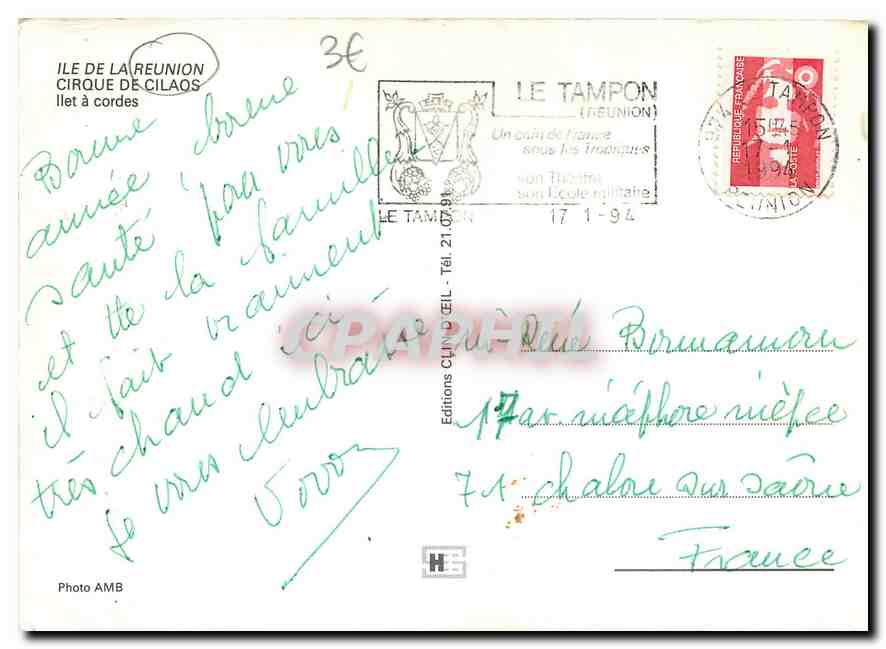 ILE DE LA REUNION
CIRQUE DE CILAOS
Ilet à cordes
3€
Bonne bonne
année
santé pour vous
et tte la famille
il fait vraiment
très chaud ici
je vous embrasse
LE TAMPON
(REUNION)
Un coin de France
sous les Tropiques
son Théatre
son Ecole militaire
LE TAMPON 17 1-94
REPUBLIQUE FRANÇAISE
LA POSTE
974 TAMPON
15H45
17-1
1994
REUNION
Editions CLIN D'ŒIL - Tél. 21.07.91
CPAPHIL
René
17 av nicéphore nièpce
71 chalon sur saône
France
HSB
Photo AMB